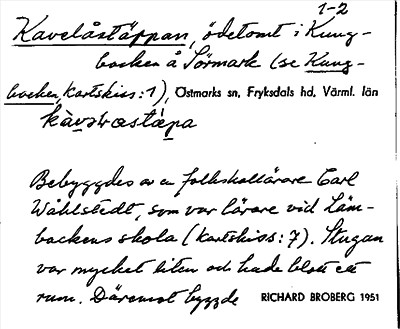 1-2
Kavelåstäppan, ödetomt i Kung-
backen å Sörmark (se Kung-
backen, Kartskiss: 1), Östmarks sn, Fryksdals hd, Värml. län
Bebyggdes av en folkskollärare Carl
Wåhlstedt, som var lärare vid Läm-
backens skola (Kartskiss: 7). Stugan
var mycket liten och hade blott ett
rum. Däremot byggde RICHARD BROBERG 1951